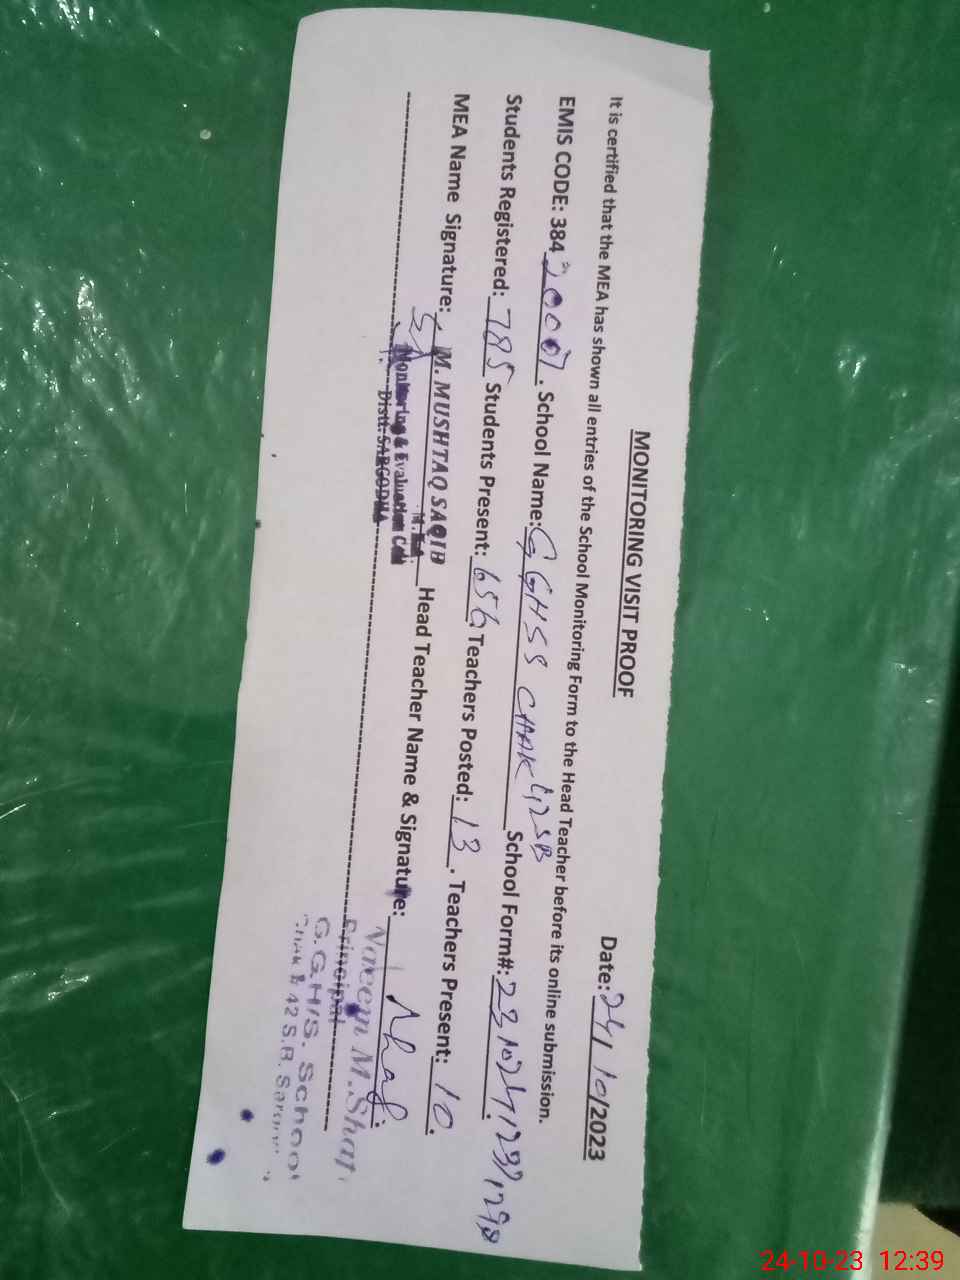 MONITORING VISIT PROOF
Date: 24/10/2023
It is certified that the MEA has shown all entries of the School Monitoring Form to the Head Teacher before its online submission.
EMIS CODE: 384 School Name: GGHSS CHAK 42 SB School Form#:
Students Registered: 785 Students Present: 656 Teachers Posted: 13. Teachers Present: 10.
MEA Name Signature: M. MUSHTAQ SAQIB Head Teacher Name & Signature:
Monitoring & Evaluation Cell
Distt. SARGODHA
Principal
G.G.H/S. School
Chak 42 S.B.
24-10-23 12:39